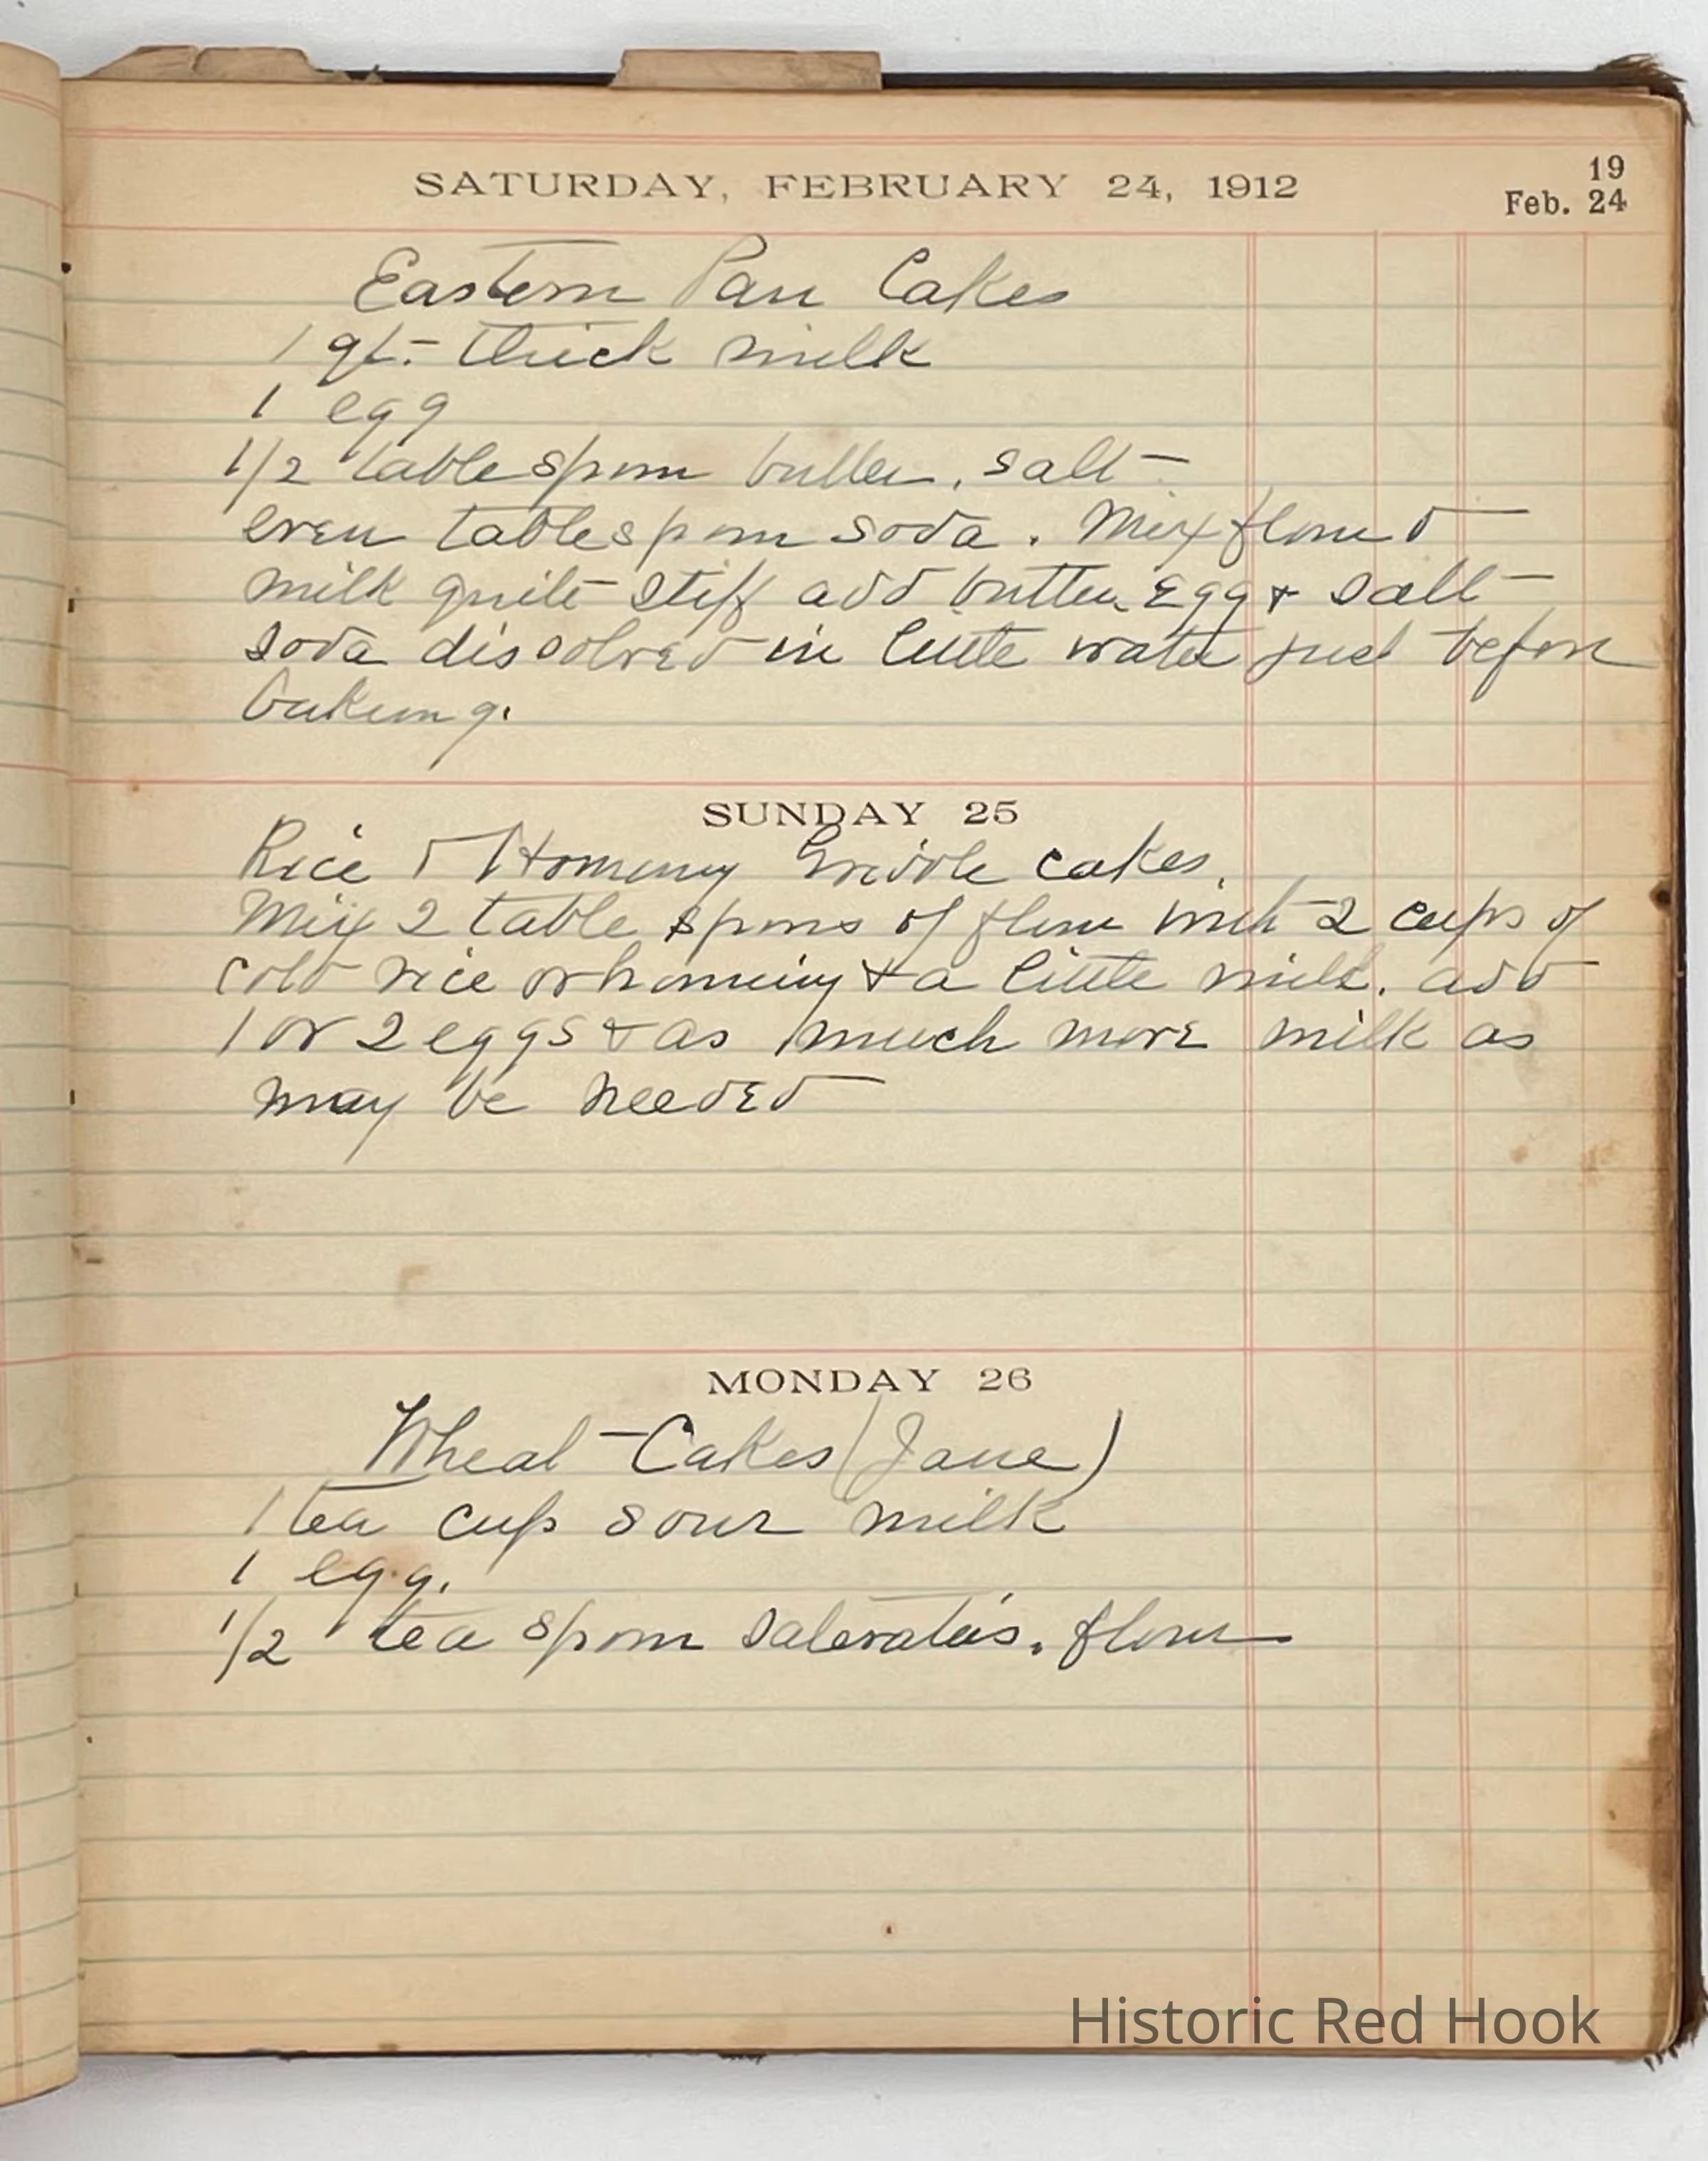 SATURDAY, FEBRUARY 24, 1912
19
Feb. 24
Eastern Pan Cakes
1 qt. thick milk
1 egg
1/2 table spoon butter, salt
even tablespoon soda. Mix flour &
milk quite stiff add butter, Egg & salt
soda dissolved in little water just before
baking.
SUNDAY 25
Rice & Hominy Griddle cakes.
Mix 2 table spoons of flour with 2 cups of
cold rice or hominy & a little milk. add
1 or 2 eggs & as much more milk as
may be needed
MONDAY 26
Wheat Cakes (Jane)
1 tea cup sour milk
1 egg.
1/2 tea spoon saleratus. flour
Historic Red Hook